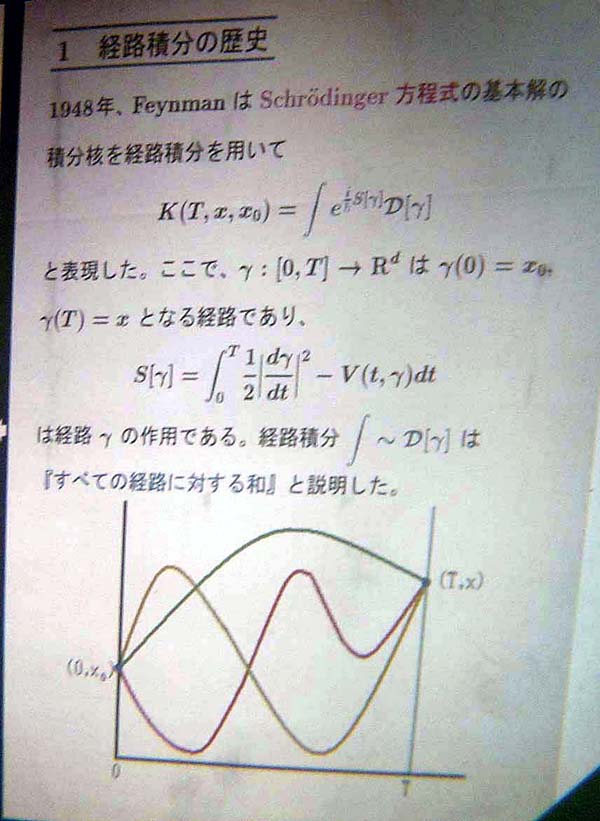 1 経路積分の歴史
1948年、Feynman は Schrödinger 方程式の基本解の
積分核を経路積分を用いて
K(T, x, x₀) = ∫ e^{\frac{i}{ħ}S[γ]} 𝒟[γ]
と表現した。ここで、γ : [0, T] → R^d は γ(0) = x₀,
γ(T) = x となる経路であり、
S[γ] = ∫₀^T \frac{1}{2}|\frac{dγ}{dt}|² − V(t, γ)dt
は経路 γ の作用である。経路積分 ∫ ∼ 𝒟[γ] は
『すべての経路に対する和』と説明した。
(T,x)
(0,x₀)
0
T